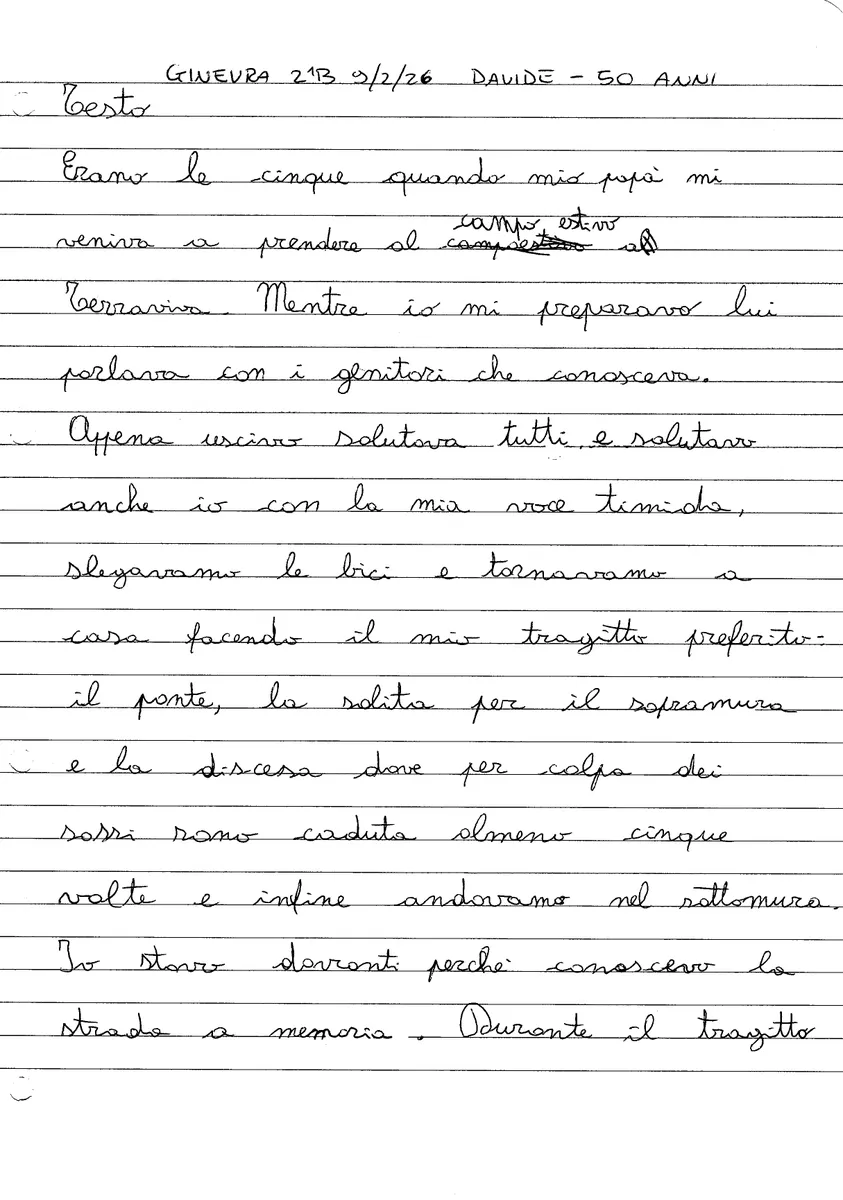 GINEVRA 21B 9/2/26 DAVIDE - 50 ANNI
Testo
Erano le cinque quando mio papà mi
veniva a prendere al campo estivo al
Terraviva. Mentre io mi preparavo lui
parlava con i genitori che conosceva.
Appena uscivo salutava tutti e salutavo
anche io con la mia voce timida,
slegavamo le bici e tornavamo a
casa facendo il mio tragitto preferito:
il ponte, la salita per il sopramura
e la discesa dove per colpa dei
sassi sono caduta almeno cinque
volte e infine andavamo nel sottomura.
Io stavo davanti perché conoscevo la
strada a memoria. Durante il tragitto